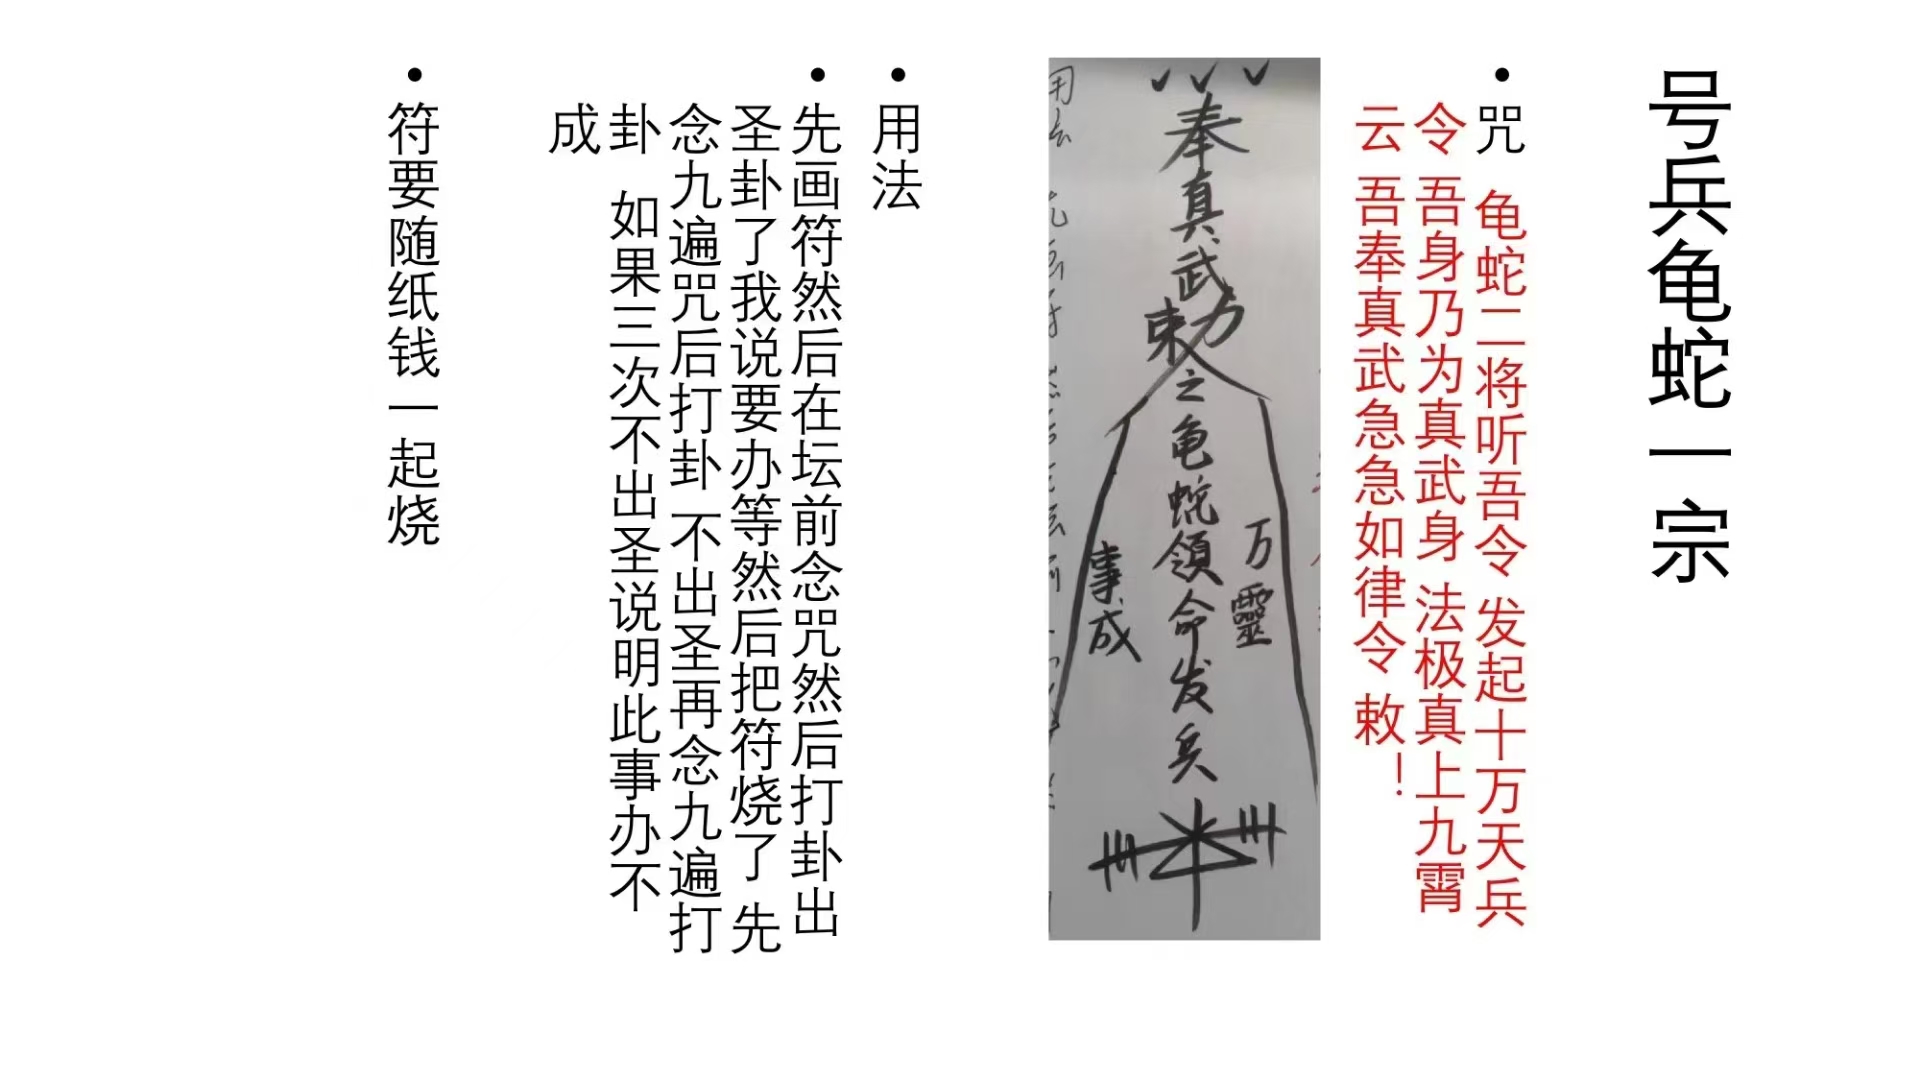 号兵龟蛇一宗
• 咒 龟蛇二将听吾令 发起十万天兵
令 吾身乃为真武身 法极真上九霄
云 吾奉真武急急如律令 敕！
奉真武敕之龟蛇領命发兵
万靈
事成
• 用法
• 先画符然后在坛前念咒然后打卦出
圣卦了我说要办等然后把符烧了 先
念九遍咒后打卦 不出圣再念九遍打
卦 如果三次不出圣说明此事办不
成
• 符要随纸钱一起烧